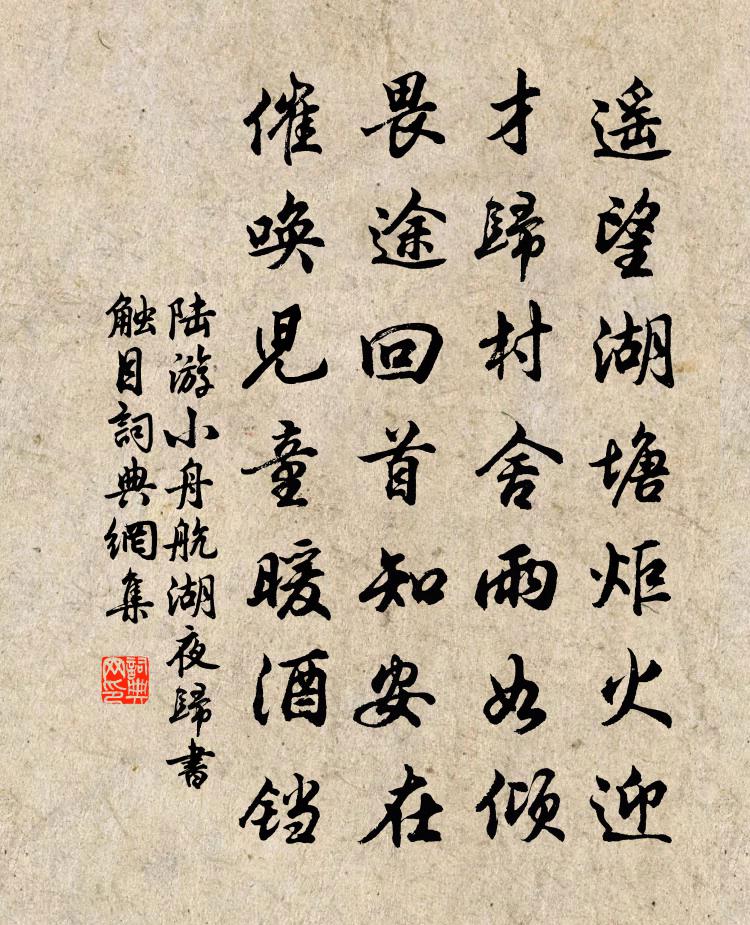 遥望湖塘炬火迎
才歸村舍雨如傾
畏途回首知安在
催唤兒童暖酒铛
陆游小舟航湖夜歸書
触目詞典網集
詞典网印